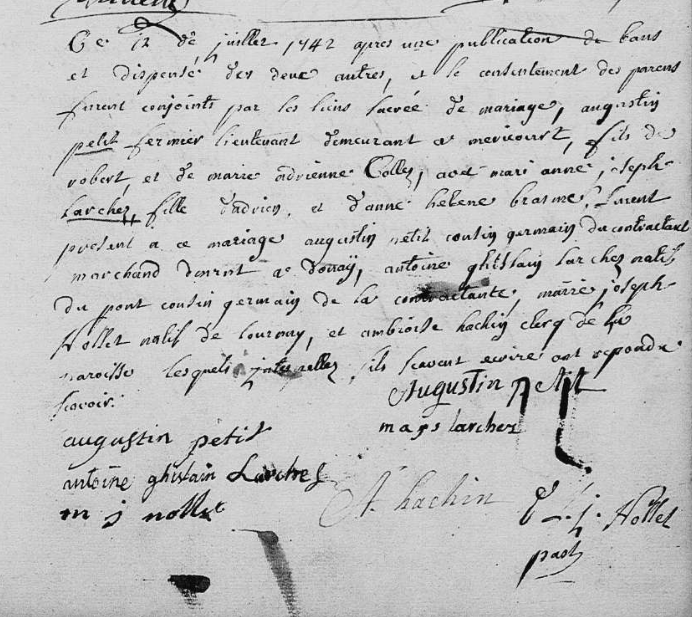 Ce 12 de juillet 1742 apres une publication de bans
et dispense des deux autres, et le consentement des parens
furent conjoints par les liens sacrée de mariage, augustin
petit fermier lieutenant demeurant a mericourt, fils de
robert, et de marie adrienne Collez, avec mari anne joseph
Larchez, fille d'adrien, et d'anne helene brasme, furent
present a ce mariage augustin petit cousin germain du contractant
marchand demrnt a douäy, antoine ghislain Larchez natif
du pont cousin germain de la contractante, marie joseph
Nollet natif de tournay, et ambroise hachin clerq de la
paroisse lesquels interpellez s'ils scavent ecrire ont repondu
scavoir.
Augustin petit
m a j s larchez
augustin petit
antoine ghislain Larchez
m j nollet
A hachin
Nollet
past